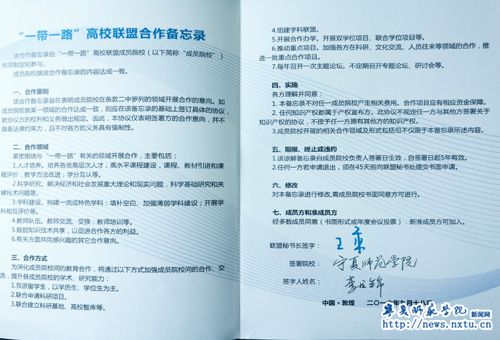 “一带一路”高校联盟合作备忘录
该合作备忘录由“一带一路”高校联盟成员院校（以下简称“成员院校”）
共同制定和参与。
成员院校就该合作备忘录的内容达成一致。
一、合作原则
该合作备忘录旨在表明成员院校在条款二中罗列的领域开展合作的意向。如
成员院校就某一领域的合作达成一致，则应在该备忘录的基础上签订具体的协议，
就协议方的权利和义务做出规定。因此，本协议仅表明签署方的合作意向，并不
具备法律约束力，且不对各方的义务具有强制性。
二、合作领域
紧密围绕与“一带一路”有关的领域开展合作，主要包括：
1.人才培养。培养各类高层次人才，高水平课程建设，课程、教材引进和课
程评价；教学方法改进；学分互认等。
2.科学研究。解决经济和社会发展重大理论和现实问题，科学基础研究和关
键技术问题等。
3.学科建设。构建一流或特色学科；填补空白、加强薄弱学科建设；开展学
科相互评价等。
4.教师队伍。教师交流、交换；教师培训等。
5.鼓励知识技术共享，以促进合作各方的利益。
6.有关方面共同感兴趣的其它合作意向。
三、合作方式
为深化成员院校间的教育合作，将通过以下方式加强成员院校间的合作、交
流，提升各成员院校的学术、研究能力：
1.互派留学生，以学历生、学位生为主。
2.联合申请科研项目。
3.联合建立科研基地、高校智库等。
4.组建学科联盟。
5.开展合作办学。开展双学位项目、联合学位项目等。
6.推动重点项目。加强各方在科研、文化交流、人员往来等领域的合作，推
进一批重点合作项目。
7.每年召开一次主题论坛。不定期召开专题论坛、研讨会等。
四、实施
各方理解并同意：
1.本备忘录不对任一成员院校产生相关费用。合作项目应有相应资金保障。
2.任何知识产权都属于产权宣布方。此协议不规定任一方与其他方签署关于
知识产权的协议，不授予任一方拥有其他方的知识产权。
3.成员院校开展的相关合作领域及形式包括但不仅限于本备忘录所述内容。
五、期限、终止或违约
1.该谅解备忘录自成员院校负责人签署日生效，自签署日起5年有效。
2.任何一方若申请退出，须在45天前向联盟秘书处提交书面申请。
六、修改
对备忘录进行修改，需成员院校书面同意方可进行。
七、成员方和准成员方
经多数成员同意（书面形式或年度会议投票），新准成员方可加入。
联盟秘书长签字：
签署院校： 宁夏师范学院
签字人姓名：
中国·敦煌 二〇一六年九月十八日
宁夏师范学院 新闻网
http://news.nxtu.cn